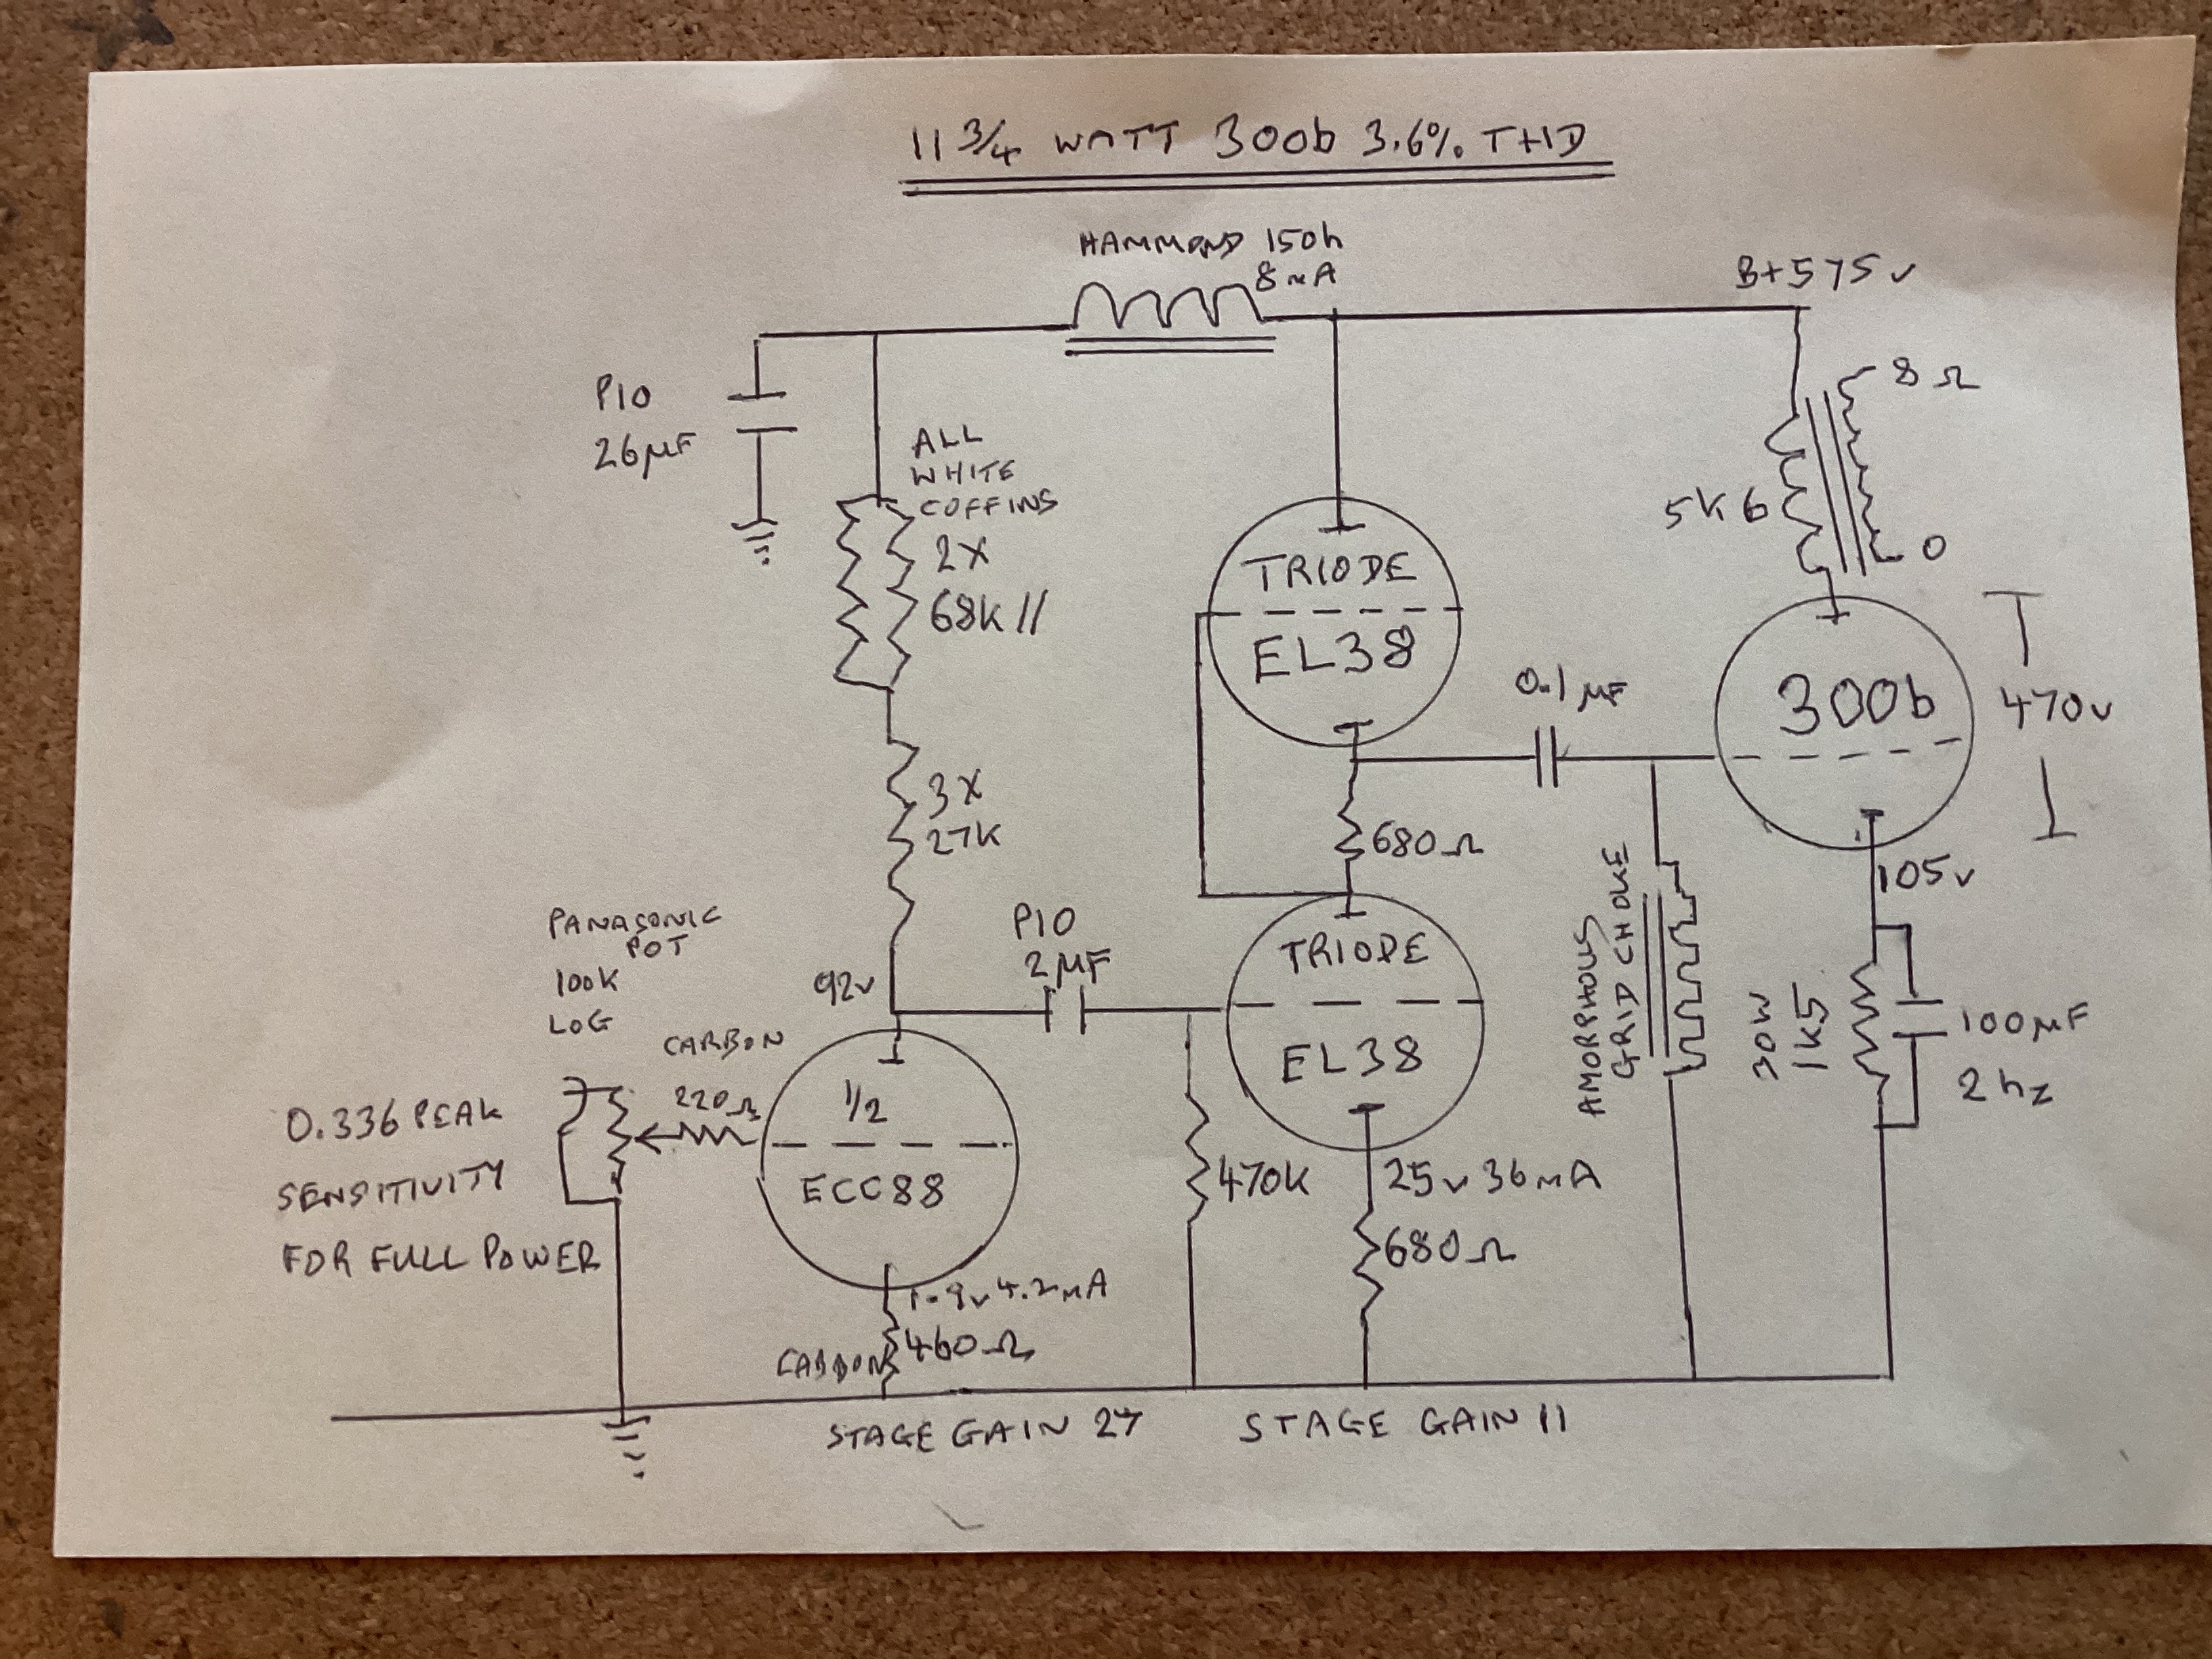 11 3/4 WATT 300b 3.6% THD
HAMMOND 150h
8mA
B+575v
P10
26µF
ALL
WHITE
COFFINS
2X
68K //
3X
27K
8Ω
5K6
0
TRIODE
EL38
0.1µF
300b
470v
680Ω
105v
PANASONIC
POT
100K
LOG
CARBON
92v
P10
2µF
TRIODE
EL38
AMORPHOUS
GRID CHOKE
30W
1K5
100µF
2hz
0.336 PEAK
SENSITIVITY
FOR FULL POWER
220Ω
1/2
ECC88
470K
25v 36mA
680Ω
1.9v 4.2mA
460Ω
CARBON
STAGE GAIN 27
STAGE GAIN 11